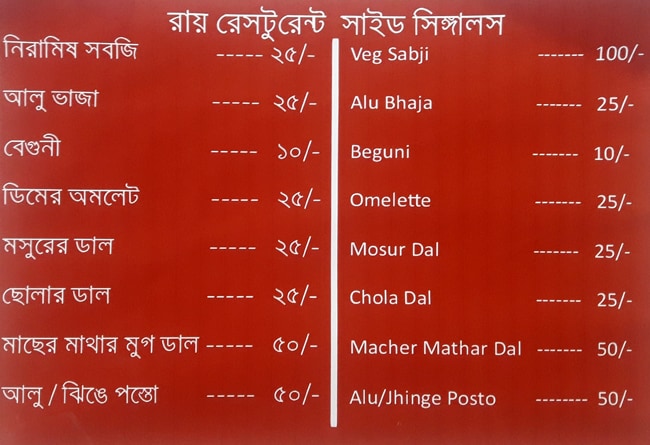 রায় রেসটুরেন্ট সাইড সিঙ্গালস
নিরামিষ সবজি ----- ২৫/-
আলু ভাজা ----- ২৫/-
বেগুনী ----- ১০/-
ডিমের অমলেট ----- ২৫/-
মসুরের ডাল ----- ২৫/-
ছোলার ডাল ----- ২৫/-
মাছের মাথার মুগ ডাল ----- ৫০/-
আলু / ঝিঙে পস্তো ----- ৫০/-
Veg Sabji ------- 100/-
Alu Bhaja ------- 25/-
Beguni ------- 10/-
Omelette ------- 25/-
Mosur Dal ------- 25/-
Chola Dal ------- 25/-
Macher Mathar Dal ------- 50/-
Alu/Jhinge Posto -------- 50/-